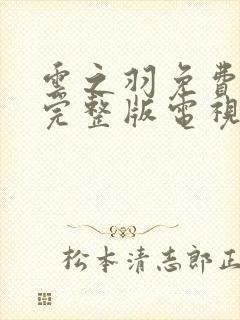 雲之羽免費
完整版電視
松本清志郎正